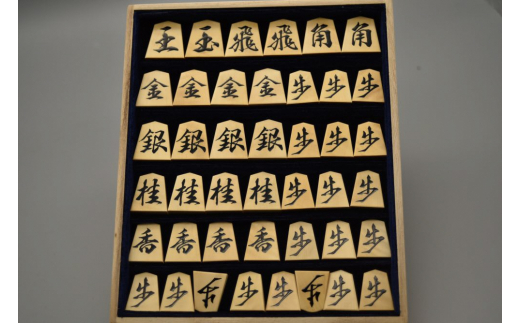 王玉飛飛角角
金金金金歩歩歩
銀銀銀銀歩歩歩
桂桂桂桂歩歩歩
香香香香歩歩歩
歩歩歩歩歩歩歩歩